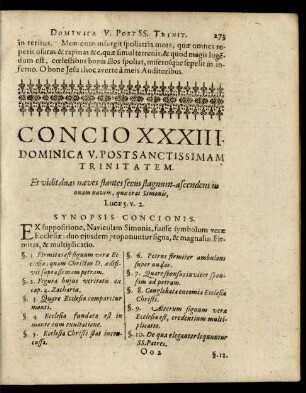 DOMINICA V. POST SS. TRINIT. 273
in teritus. Momento insurgit spoliatrix mors, quæ omnes repetit
usuras & rapinas &c. quæ simul terrenis, & quod magis lugendum
est, cœlestibus bonis illos spoliat, miserosque sepelit in inferno.
O bone Jesu! hoc averte à meis Auditoribus.
CONCIO XXXIII.
DOMINICA V. POST SANCTISSIMAM
TRINITATEM.
Et vidit duas naves stantes secus stagnum-ascendens in
unam navem, quæ erat Simonis,
Lucæ 5. v. 2.
SYNOPSIS CONCIONIS.
EX suppositione, Naviculam Simonis, fuisse symbolum veræ
Ecclesiæ: duo ejusdem proponuntur signa, & magna: ejus Firmitas,
& multiplicatio.
§. 1 Firmitas est signum veræ Ecclesiæ,
quam Christus D. ædificavit
supra firmam petram.
§. 2. Figura hujus veritatis ex
cap. 4. Zachariæ.
§. 3. Quare Ecclesia comparetur
monti.
§. 4 Ecclesia fundata est in
monte cum exultatione.
§. 5. Ecclesia Christi stat inconcussa.
§. 6. Petrus firmiter ambulans
super undas.
§. 7. Quare sponsus invitet sponsam
ad petram.
§. 8. Conglobata encomia Ecclesiæ
Christi.
§. 9. Alterum signum veræ
Ecclesiæ est, credentium multiplicatio.
§. 10. De qua eleganter loquuntur
SS. Patres.
Oo 2 §. 12.